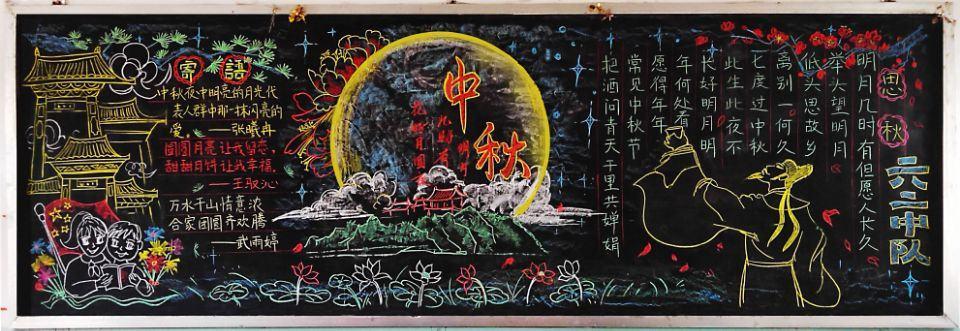 寄語
中秋夜中明亮的月光代
表人群中那一抹闪亮的
爱。——张曦冉
团圆月亮让我留恋，
甜甜月饼让我幸福。
——王驭沁
万水千山情意浓
合家团圆齐欢腾
——武雨婷
中秋
思秋
六二中队
明月几时有但愿人长久
举头望明月
低头思故乡
离别一何久
七度过中秋
此生此夜不
长好明月明
年何处看
愿得年年
常见中秋节
把酒问青天千里共婵娟